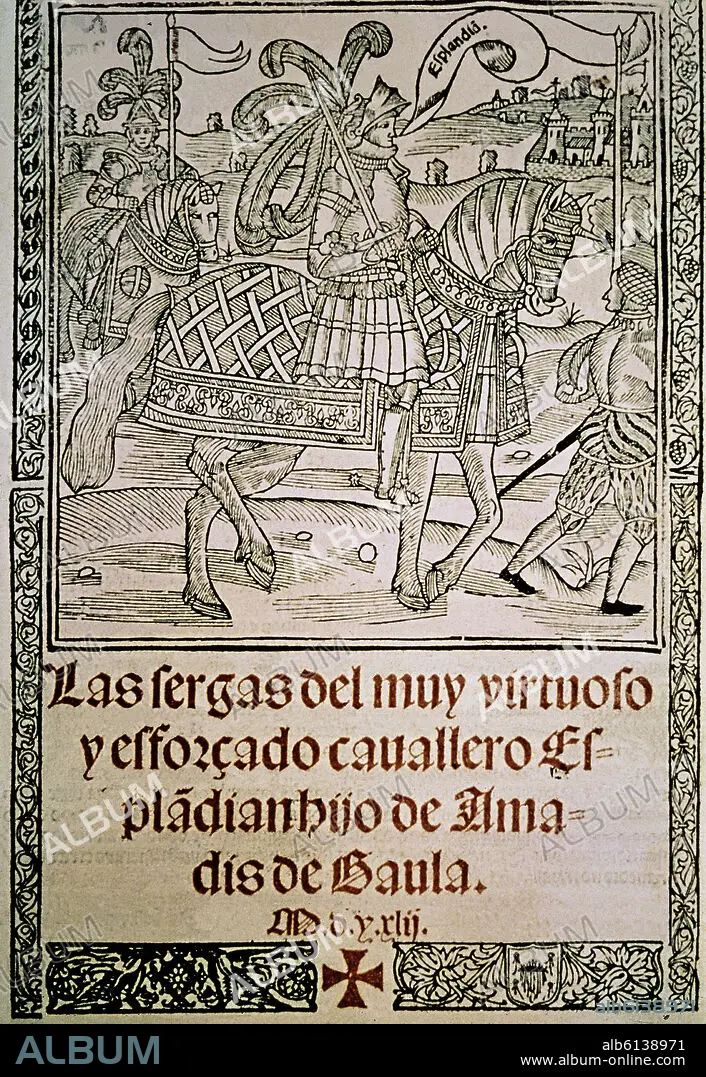 Esplandiā.
Las sergas del muy virtuoso
y esforçado cauallero Es=
plādian hijo de Ama=
dis de Gaula.
M.d.y.xlij.
ALBUM
alb6138971
www.album-online.com